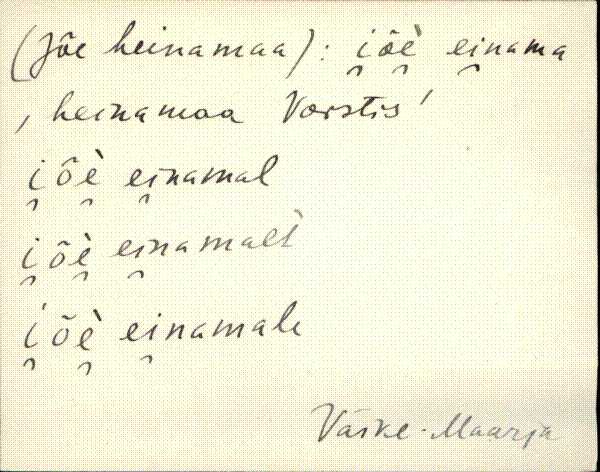 (Jõe heinamaa): i̯õè̯ ei̯nama
, heinamaa Vorstis'
i̯õè̯ ei̯namal
i̯õè̯ ei̯namalt
i̯õè̯ ei̯namale
Väike-Maarja